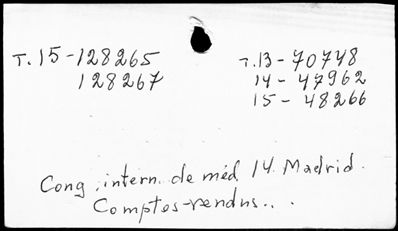 т.15-128265
128267
т.13-70748
14-47962
15-48266
Cong. intern. de méd 14. Madrid.
Comptes-rendus...